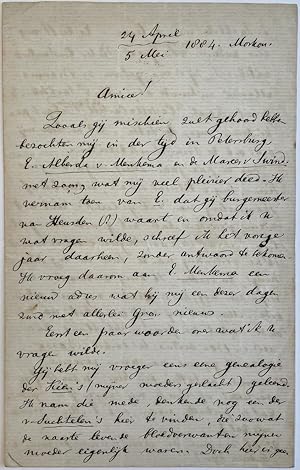 24 April
5 Mei 1884. Moskou.
Amice!
Zooals gij misschien zult gehoord hebben
bezochten mij in der tijd in Petersburg
E. Alberda v. Menkema en de Marees v. Swind.
met zoon, wat mij veel pleizier deed. Ik
vernam toen van E. dat gij burgemeester
van Heusden (?) waart en omdat ik u
wat vragen wilde, schreef ik het vorige
jaar daarheen, zonder antwoord te bekomen.
Ik vroeg daarom aan E. Menkema een
nieuw adres wat hij mij een dezer dagen
zond met allerlei Gron. nieuws.
Eerst een paar woorden over wat ik te
vragen wilde.
Gij hebt mij vroeger eens eene genealogie
der (mijner moeders geslacht) geleend.
Ik nam die mede denkende nog een der
v. Suchtelen's hier te vinden, die zoowat
de naaste levende bloedverwanten mijner
moeder eigenlijk waren. Doch hier is geen